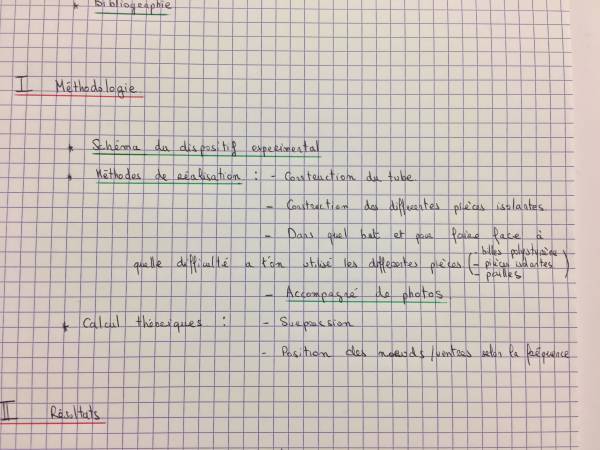 * Bibliographie
I Méthodologie
* Schéma du dispositif experimental
* Méthodes de réalisation : - Construction du tube.
- Construction des differentes pièces isolantes
- Dans quel but et pour faire face à
quelle difficulté a t'on utilisé les differentes pièces ( - billes polystyrène
- pièces isolantes
- pailles )
- Accompagné de photos.
* Calcul théoriques : - Surpression
- Position des noeuds/ventres selon la fréquence
II Résultats